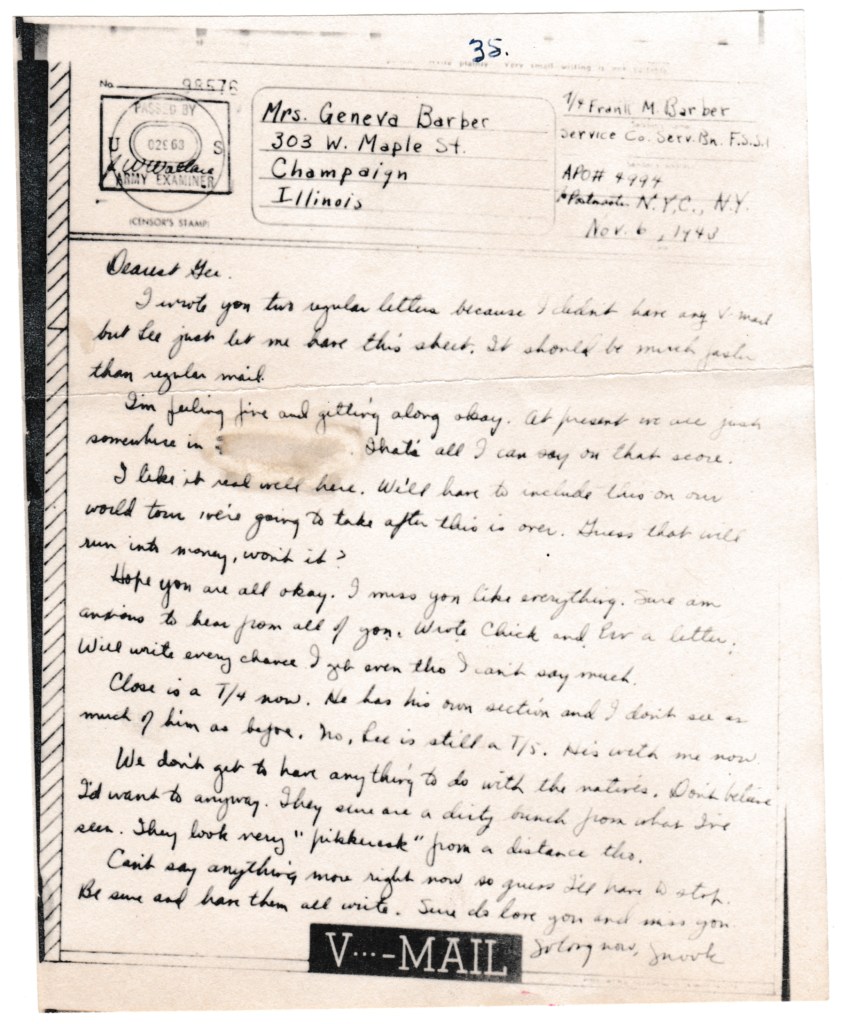 35.
No. 98576
PASSED BY
U 02E63 S
ARMY EXAMINER
(CENSOR'S STAMP)
Mrs. Geneva Barber
303 W. Maple St.
Champaign
Illinois
T/4 Frank M. Barber
Service Co. Serv. Bn. F.S.S.F
APO# 4994
℅ Postmaster N.Y.C., N.Y.
Nov. 6, 1943
Dearest Gee.
I wrote you two regular letters because I didn't have any V-mail
but Lee just let me have this sheet. It should be much faster
than regular mail.
I'm feeling fine and gitting along okay. At present we are just
somewhere in . That's all I can say on that score.
I like it real well here. We'll have to include this on our
world tour we're going to take after this is over. Guess that will
run into money, won't it?
Hope you are all okay. I miss you like everything. Sure am
anxious to hear from all of you. Wrote Chick and Erv a letter.
Will write every chance I get even tho I can't say much.
Close is a T/4 now. He has his own section and I don't see as
much of him as before. No, Lee is still a T/5. His with me now.
We don't get to have anything to do with the natives. Don't believe
I'd want to anyway. They sure are a dirty bunch from what I've
seen. They look very "pikkuresk" from a distance tho.
Can't say anything more right now so guess I'll have to stop.
Be sure and have them all write. Sure do love you and miss you.
So long now, Snook
V···—MAIL